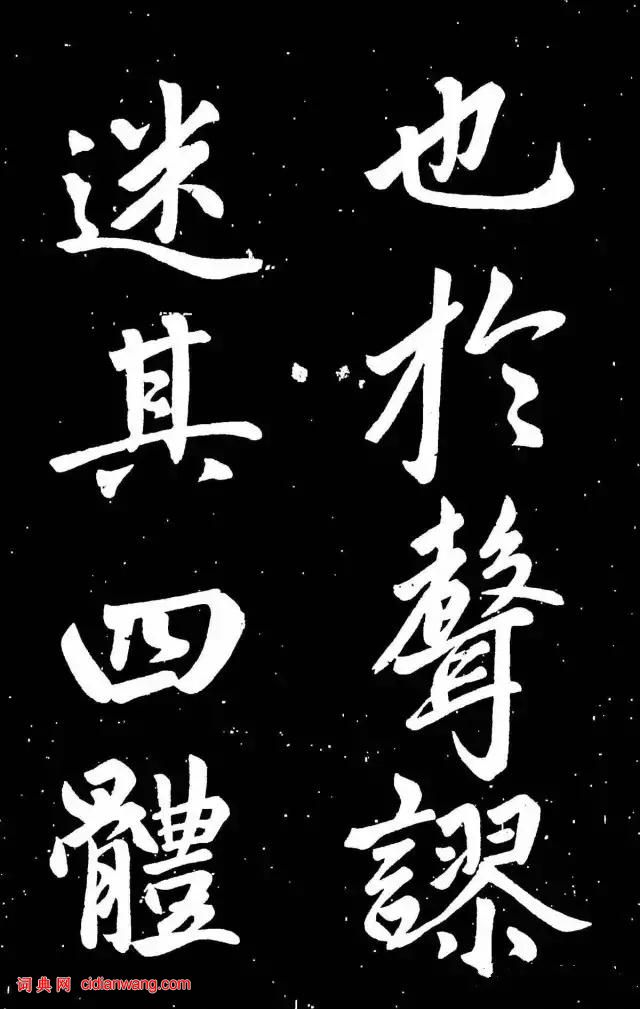 也於聲謬
迷其四體
词典网 cidianwang.com